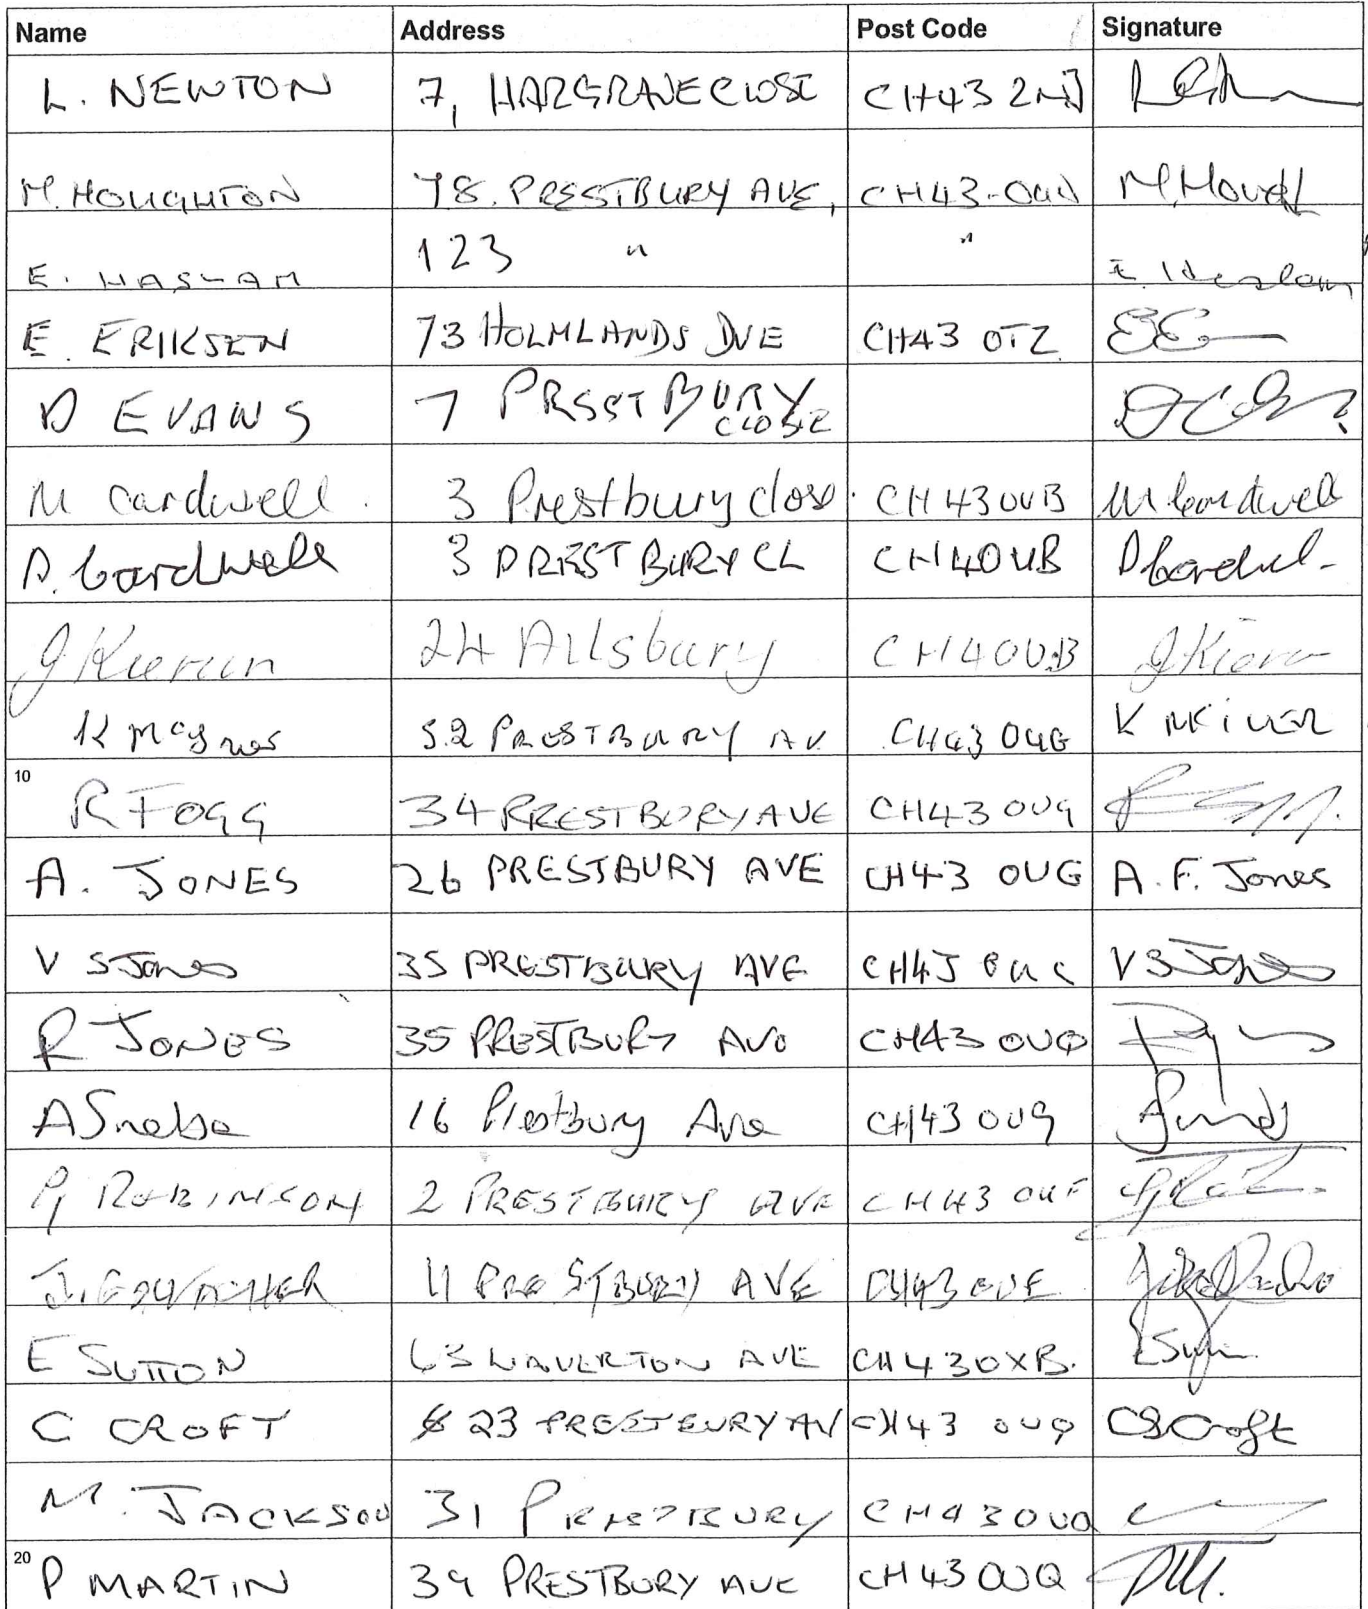 Name Address Post Code Signature
L. NEWTON 7, HARGRAVE CLOSE CH43 2NJ
M. HOUGHTON 78. PRESTBURY AVE, CH43-0UU M. Hough
E. HASLAM 123 " " E. Haslam
E. ERIKSEN 73 HOLMLANDS DVE CH43 0TZ
D EVANS 7 PRESTBURY CLOSE
M Cardwell. 3 Prestbury close. CH43 0UB M Cardwell
D. Cardwell 3 PRESTBURY CL CH40UB D Cardwell
J Kieran 24 Ailsbury CH40UB J Kieran
K 52 PRESTBURY AV. CH43 0UG
10 R FOGG 34 PRESTBURY AVE CH43 0UG
A. JONES 26 PRESTBURY AVE CH43 0UG A. F. Jones
V S Jones 35 PRESTBURY AVE CH43 V S Jones
R JONES 35 PRESTBURY AVE CH43 0UQ
16 Prestbury Ave CH43 0UG
ROBINSON 2 PRESTBURY AVE CH43 0UF
J. 11 PRESTBURY AVE CH43 0UE
E SUTTON 63 WAVERTON AVE CH43 0XB.
C CROFT 23 PRESTBURY AV CH43 0UQ C Croft
M. JACKSON 31 PRESTBURY CH43 0UQ
20 P MARTIN 39 PRESTBURY AVE CH43 0UQ